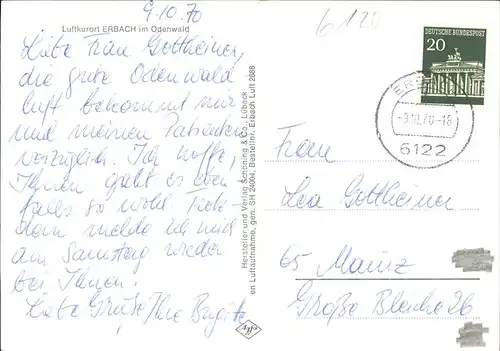 9.10.70
6120
Luftkurort ERBACH im Odenwald
Liebe Frau Gottheiner,
die gute Odenwald
luft bekommt mir
und meinen Patienten
vorzüglich. Ich hoffe,
Ihnen geht es eben
falls so wohl. Trotz-
dem melde ich mich
am Samstag wieder
bei Ihnen.
Liebe Grüße Ihre Brigitte
Hersteller und Verlag Schöning & Co., Lübeck
en Luftaufnahme, gen. SH 24004, Bestellnr. Erbach Luft 2888
DEUTSCHE BUNDESPOST
20
-9.10.70-18
6122
Frau
Lea Gottheiner
65 Mainz
Große Bleiche 26